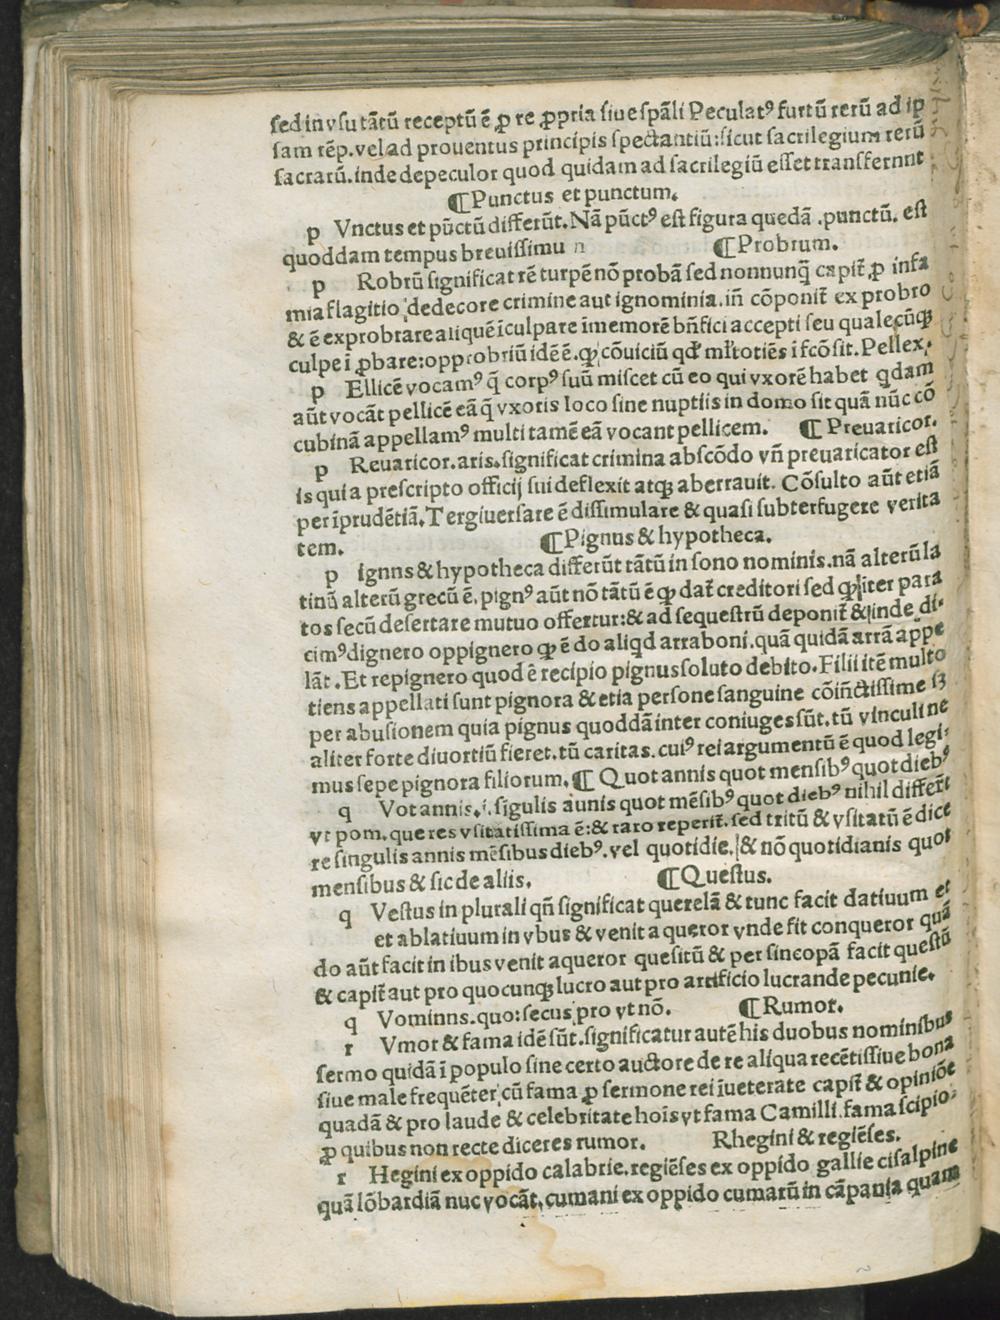 sed in vsu tãtũ receptũ ẽ ꝓ re ꝓpria siue spãli Peculatꝰ furtũ rerũ ad ip
sam rẽp. vel ad prouentus principis spectantiũ: sicut sacrilegium rerũ
sacrarũ. inde depeculor quod quidam ad sacrilegiũ esset transfernnt
¶Punctus et punctum.
p Vnctus et pũctũ differũt. Nã pũctꝰ est figura quedã .punctũ. est
quoddam tempus breuissimu n ¶Probrum.
p Robrũ significat rẽ turpẽ nõ probã sed nonnunq̃ capit̃ ꝓ infa
mia flagitio dedecore crimine aut ignominia. iñ cõponit̃ ex probro
& ẽ exprobrare aliquẽ ĩculpare ĩmemorẽ bñfici accepti seu qualecũqꝫ
culpe ĩ ꝓbare: opprobriũ idẽ ẽ. ꝙ cõuiciũ qđ mĺtotiẽs i fcõ sit. Pellex.
p Ellicẽ vocamꝰ q̃ corpꝰ suũ miscet cũ eo qui vxorẽ habet qdam
aũt vocãt pellicẽ eã q̃ vxoris loco sine nuptiis in domo sit quã nũc cõ
cubinã appellamꝰ multi tamẽ eã vocant pellicem. ¶ Preuaricor.
p Reuaricor. aris. significat crimina abscõdo vñ preuaricator est
is qui a prescripto officij sui deflexit atqꝫ aberrauit. Cõsulto aũt etiã
per ĩprudẽtiã. Tergiuersare ẽ dissimulare & quasi subterfugere verita
tem. ¶Pignus & hypotheca.
p ignns & hypotheca differũt tãtũ in sono nominis. nã alterũ la
tinũ alterũ grecũ ẽ. pignꝰ aũt nõ tãtũ ẽ ꝙ dat̃ creditori sed ꝙliter para
tos secũ desertare mutuo offertur: & ad sequestrũ deponit̃ & inde di-
cimꝰ dignero oppignero ꝙ ẽ do aliqd arraboni. quã quidã arrã appe
lãt. Et repignero quod ẽ recipio pignus soluto debito. Filii itẽ multo
tiens appellati sunt pignora & etia persone sanguine cõiñctissime sꝫ
per abusionem quia pignus quoddã inter coniuges sũt. tũ vinculi ne
aliter forte diuortiũ fieret. tũ caritas. cuiꝰ rei argumentũ ẽ quod legi-
mus sepe pignora filiorum. ¶ Quot annis quot mensibꝰ quot diebꝰ
q Vot annis. i. sigulis aunis quot mẽsibꝰ quot diebꝰ nihil differt̃
vt pom. que res vsitatissima ẽ: & raro reperit̃. sed tritũ & vsitatũ ẽ dice
re singulis annis mẽsibus diebꝰ. vel quotidie. & nõ quotidianis quot
mensibus & sic de aliis. ¶Questus.
q Vestus in plurali qñ significat querelã & tunc facit datiuum et
et ablatiuum in vbus & venit a queror vnde fit conqueror quã
do aũt facit in ibus venit a queror quesitũ & per sincopã facit questũ
& capit̃ aut pro quocunqꝫ lucro aut pro artificio lucrande pecunie.
q Vominns. quo: secus pro vt nõ. ¶Rumor.
r Vmor & fama idẽ sũt. significatur autẽ his duobus nominibus
sermo quidã ĩ populo sine certo auctore de re aliqua recẽti siue bona
siue male frequẽter cũ fama ꝓ sermone rei ĩueterate capit̃ & opiniõe
quadã & pro laude & celebritate hoĩs vt fama Camilli. fama scipio-
ꝓ quibus non recte diceres rumor. Rhegini & regiẽses.
r Hegini ex oppido calabrie. regiẽses ex oppido gallie cisalpine
quã lõbardiã nuc vocãt. cumani ex oppido cumarũ in cãpania quam